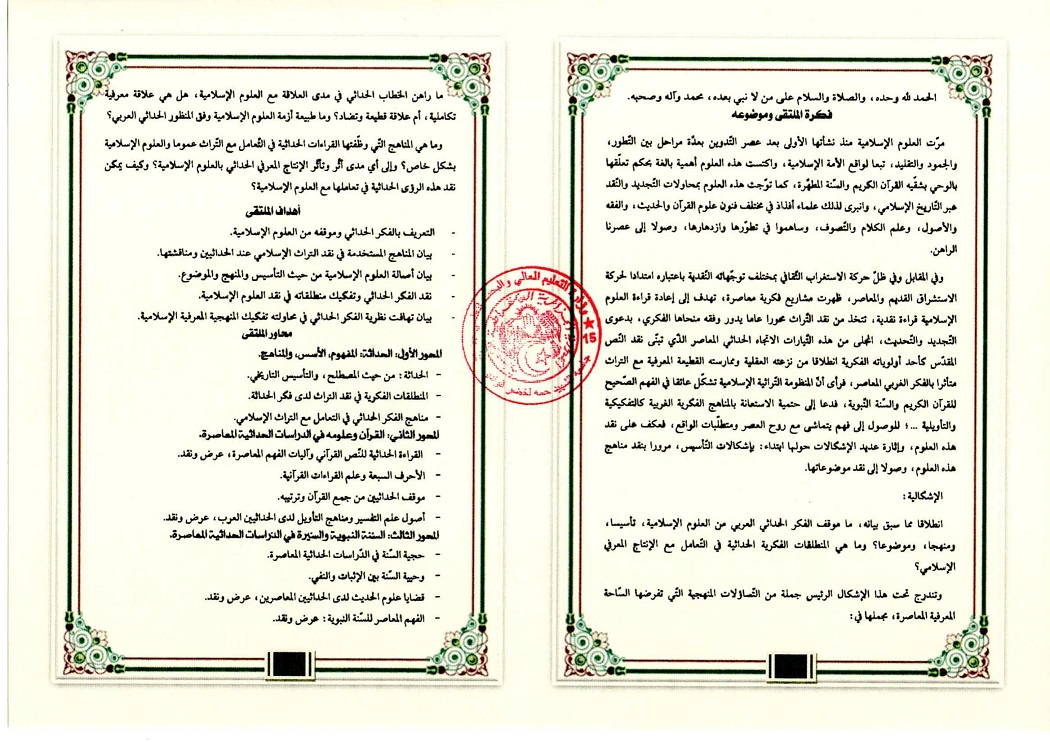 الحمد لله وحده، والصلاة والسلام على من لا نبي بعده، محمد وآله وصحبه.
فكرة الملتقى وموضوعه
مرّت العلوم الإسلامية منذ نشأتها الأولى بعد عصر التدوين بعدّة مراحل بين التّطور،
والجمود والتقليد، تبعا لواقع الأمة الإسلامية، واكتست هذه العلوم أهمية بالغة بحكم تعلّقها
بالوحي بشقّيه القرآن الكريم والسنّة المطهّرة، كما توّجت هذه العلوم بمحاولات التّجديد والنّقد
عبر التّاريخ الإسلامي، وانبرى لذلك علماء أفذاذ في مختلف فنون علوم القرآن والحديث، والفقه
والأصول، وعلم الكلام والتّصوف، وساهموا في تطوّرها وازدهارها، وصولا إلى عصرنا
الراهن.
وفي المقابل وفي ظلّ حركة الاستغراب الثّقافي بمختلف توجّهاته النّقدية باعتباره امتدادا لحركة
الاستشراق القديم والمعاصر، ظهرت مشاريع فكرية معاصرة، تهدف إلى إعادة قراءة العلوم
الإسلامية قراءة نقدية، تتخذ من نقد التّراث محورا عاما يدور وفقه منحاها الفكري، بدعوى
التّجديد والتّحديث، انجلى من هذه التّيارات الاتجاه الحداثي المعاصر الذّي تبنّى نقد النّص
المقدّس كأحد أولوياته الفكرية انطلاقا من نزعته العقلية وممارسته القطيعة المعرفية مع التراث
متأثرا بالفكر الغربي المعاصر، فرأى أنّ المنظومة التّراثية الإسلامية تشكّل عائقا في الفهم الصّحيح
للقرآن الكريم والسنّة النّبوية، فدعا إلى حتمية الاستعانة بالمناهج الفكرية الغربية كالتفكيكية
والتأويلية ...؛ للوصول إلى فهم يتماشى مع روح العصر ومتطلّبات الواقع، فعكف على نقد
هذه العلوم، وإثارة عديد الإشكالات حولها ابتداء: بإشكالات التّأسيس، مرورا بنقد مناهج
هذه العلوم، وصولا إلى نقد موضوعاتها.
الإشكالية:
انطلاقا مما سبق بيانه، ما موقف الفكر الحداثي العربي من العلوم الإسلامية، تأسيسا،
ومنهجا، وموضوعا؟ وما هي المنطلقات الفكرية الحداثية في التّعامل مع الإنتاج المعرفي
الإسلامي؟
وتندرج تحت هذا الإشكال الرئيس جملة من التّساؤلات المنهجية التّي تفرضها السّاحة
المعرفية المعاصرة، مجملها في:
ما راهن الخطاب الحداثي في مدى العلاقة مع العلوم الإسلامية، هل هي علاقة معرفية
تكاملية، أم علاقة قطيعة وتضاد؟ وما طبيعة أزمة العلوم الإسلامية وفق المنظور الحداثي العربي؟
وما هي المناهج التّي وظّفتها القراءات الحداثية في التّعامل مع التّراث عموما والعلوم الإسلامية
بشكل خاص؟ وإلى أي مدى أثّر وتأثّر الإنتاج المعرفي الحداثي بالعلوم الإسلامية؟ وكيف يمكن
نقد هذه الرؤى الحداثية في تعاملها مع العلوم الإسلامية؟
أهداف الملتقى
- التعريف بالفكر الحداثي وموقفه من العلوم الإسلامية.
- بيان المناهج المستخدمة في نقد التراث الإسلامي عند الحداثيين ومناقشتها.
- بيان أصالة العلوم الإسلامية من حيث التأسيس والمنهج والموضوع.
- نقد الفكر الحداثي وتفكيك منطلقاته في نقد العلوم الإسلامية.
- بيان تهافت نظرية الفكر الحداثي في محاولته تفكيك المنهجية المعرفية الإسلامية.
محاور الملتقى
المحور الأول: الحداثة: المفهوم، الأسس، والمناهج.
- الحداثة: من حيث المصطلح، والتأسيس التاريخي.
- المنطلقات الفكرية في نقد التراث لدى فكر الحداثة.
- مناهج الفكر الحداثي في التعامل مع التراث الإسلامي.
المحور الثاني: القرآن وعلومه في الدراسات الحداثية المعاصرة.
- القراءة الحداثية للنّص القرآني وآليات الفهم المعاصرة، عرض ونقد.
- الأحرف السبعة وعلم القراءات القرآنية.
- موقف الحداثيين من جمع القرآن وترتيبه.
- أصول علم التفسير ومناهج التأويل لدى الحداثيين العرب، عرض ونقد.
المحور الثالث: السنة النبوية والسيرة في الدراسات الحداثية المعاصرة.
- حجية السنّة في الدّراسات الحداثية المعاصرة.
- وحيية السنّة بين الإثبات والنفي.
- قضايا علوم الحديث لدى الحداثيين المعاصرين، عرض ونقد.
- الفهم المعاصر للسنّة النبوية: عرض ونقد.
15